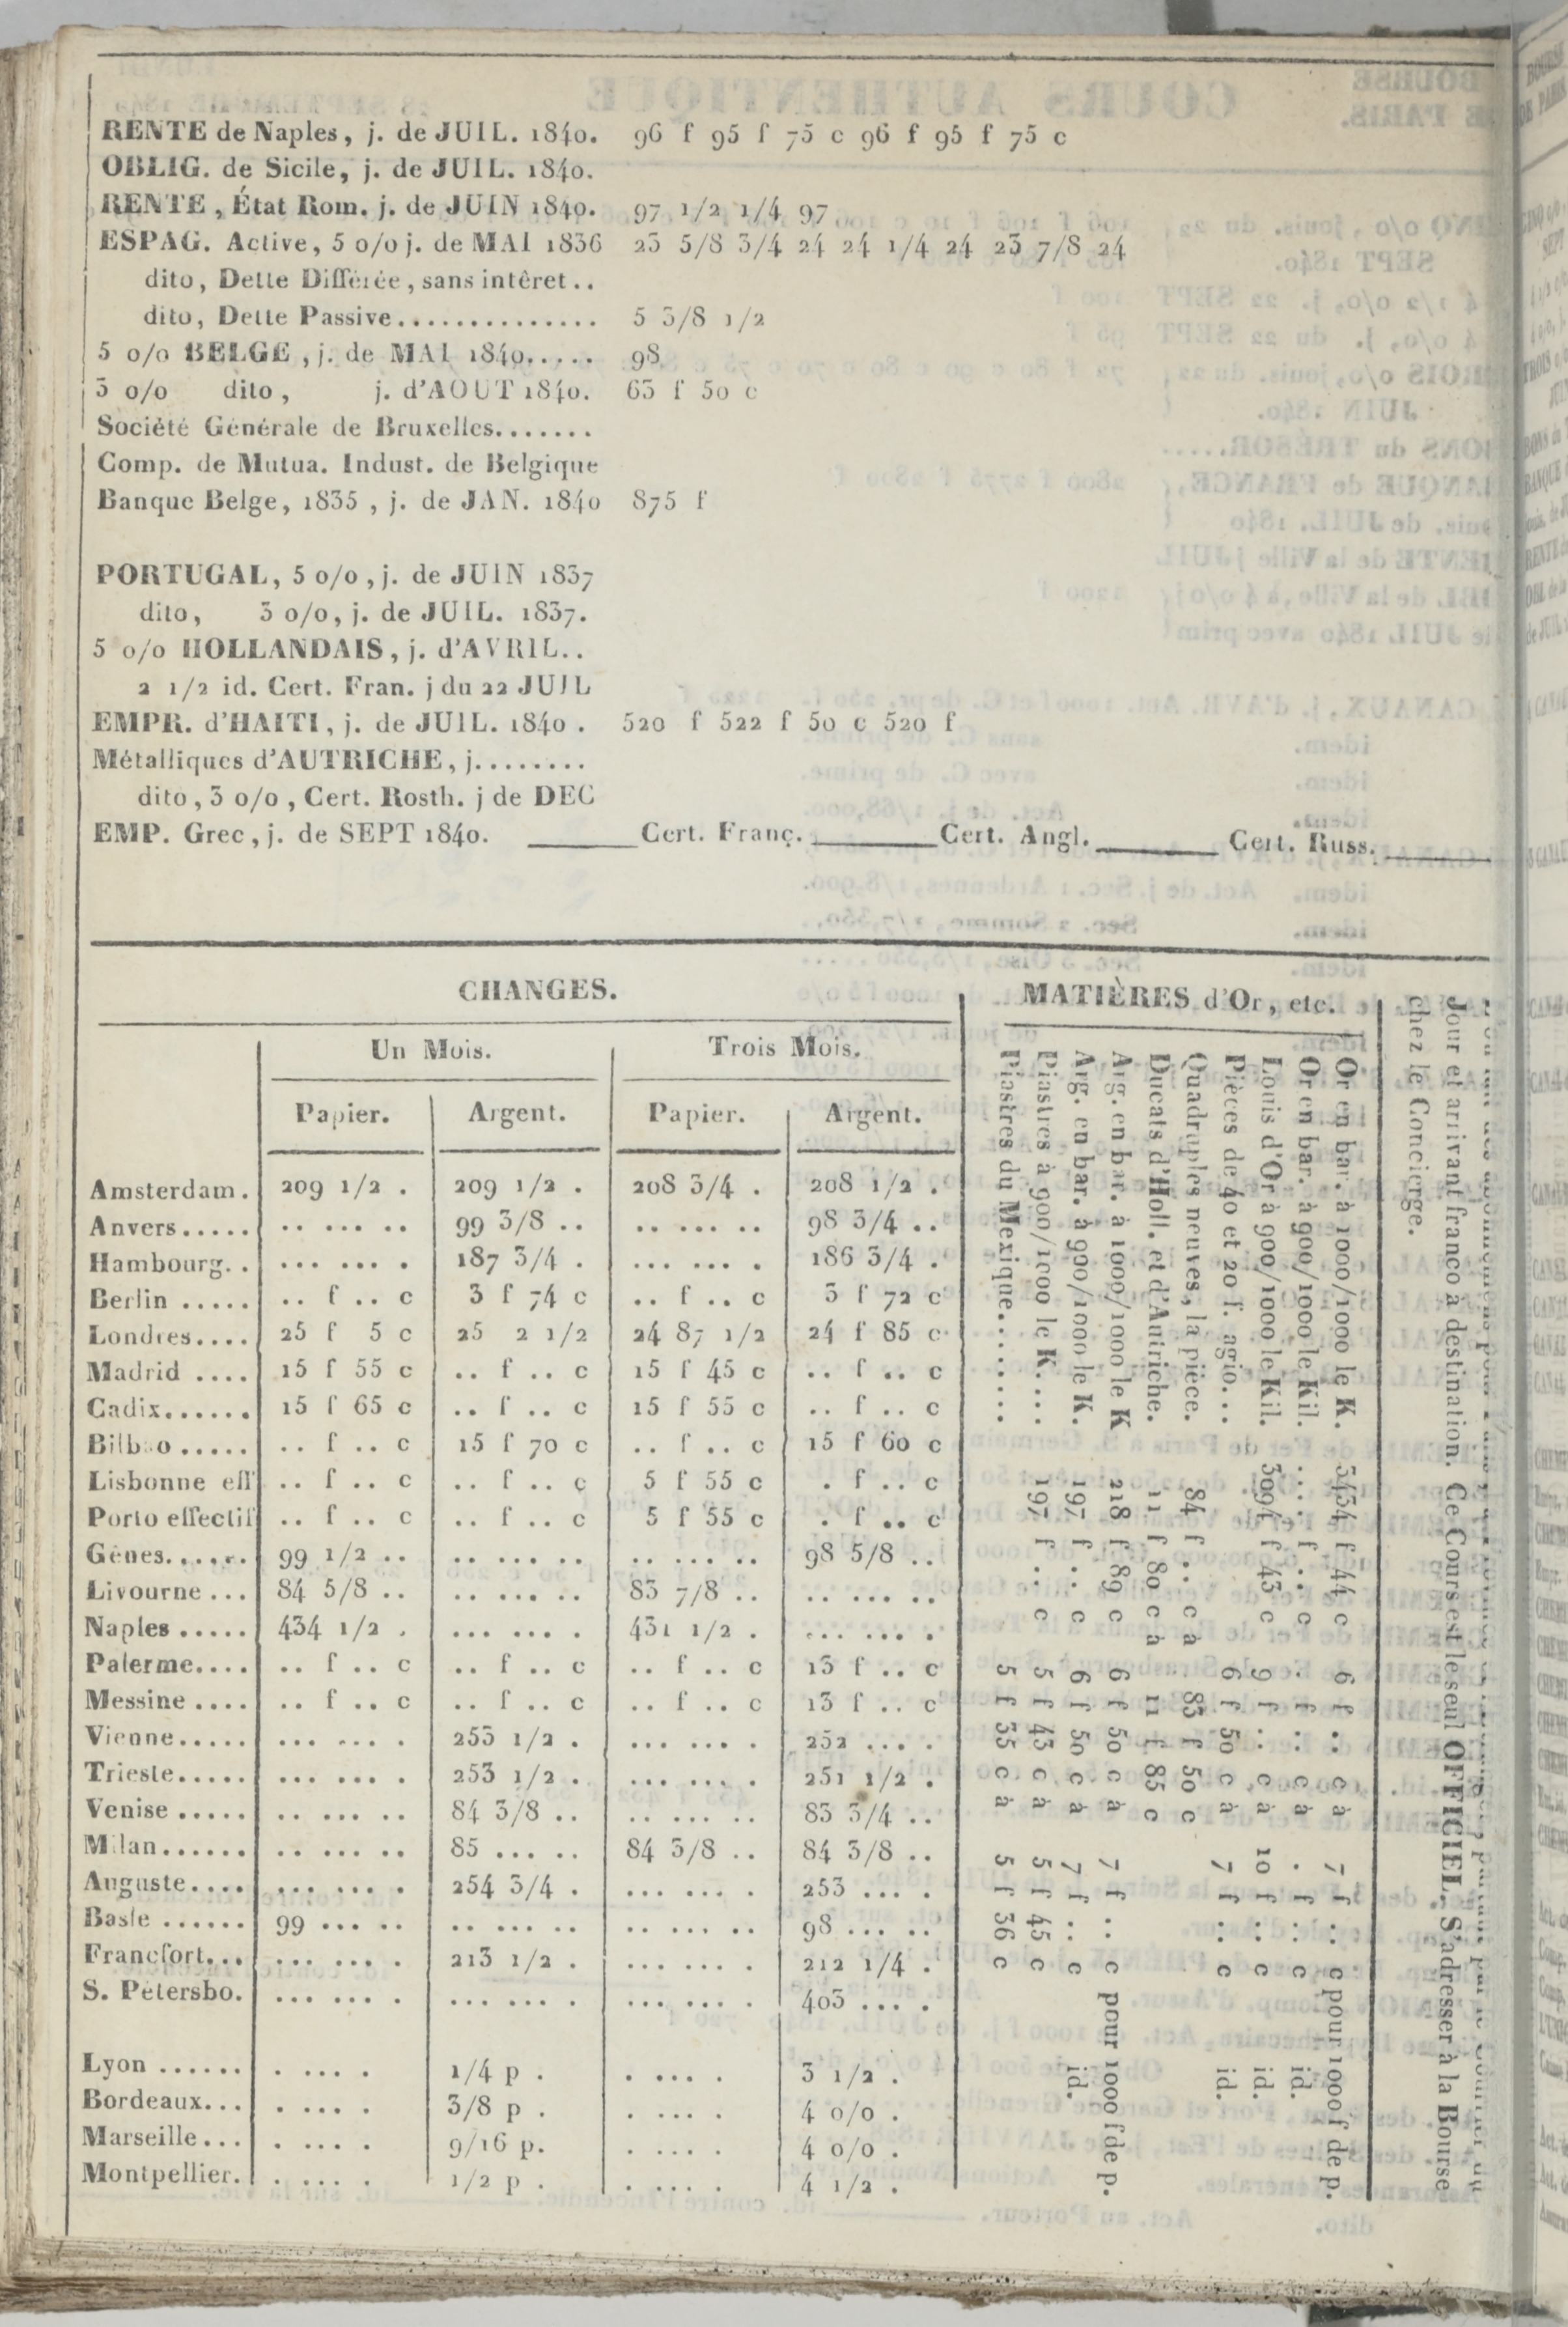 RENTE de Naples, j. de JUIL. 1840. 96 f 95 f 75 c 96 f 95 f 75 c
OBLIG. de Sicile, j. de JUIL. 1840.
RENTE, État Rom. j. de JUIN 1840. 97 1/2 1/4 97
ESPAG. Active, 5 o/o j. de MAI 1836 23 5/8 3/4 24 24 1/4 24 23 7/8 24
dito, Dette Différée, sans intêret..
dito, Dette Passive.............. 5 3/8 1/2
5 o/o BELGE, j. de MAI 1840..... 98
3 o/o dito, j. d'AOUT 1840. 63 f 50 c
Société Générale de Bruxelles.......
Comp. de Mutua. Indust. de Belgique
Banque Belge, 1835, j. de JAN. 1840 875 f
PORTUGAL, 5 o/o, j. de JUIN 1837
dito, 3 o/o, j. de JUIL. 1837.
5 o/o HOLLANDAIS, j. d'AVRIL..
2 1/2 id. Cert. Fran. j du 22 JUIL
EMPR. d'HAITI, j. de JUIL. 1840 . 520 f 522 f 50 c 520 f
Métalliques d'AUTRICHE, j........
dito, 3 o/o, Cert. Rosth. j de DEC
EMP. Grec, j. de SEPT 1840. ______ Cert. Franç. ______ Cert. Angl. ______ Cert. Russ. ______
CHANGES.
Un Mois. Trois Mois.
Papier. Argent. Papier. Argent.
Amsterdam. 209 1/2 . 209 1/2 . 208 3/4 . 208 1/2 .
Anvers..... .. ... .. 99 3/8 .. .. ... .. 98 3/4 ..
Hambourg. . ... ... . 187 3/4 . ... ... . 186 3/4 .
Berlin ..... .. f .. c 3 f 74 c .. f .. c 3 f 72 c
Londres.... 25 f 5 c 25 2 1/2 24 87 1/2 24 f 85 c
Madrid .... 15 f 55 c .. f .. c 15 f 45 c .. f .. c
Cadix...... 15 f 65 c .. f .. c 15 f 55 c .. f .. c
Bilbao ..... .. f .. c 15 f 70 c .. f .. c 15 f 60 c
Lisbonne eff .. f .. c .. f .. c 5 f 55 c . f .. c
Porto effectif .. f .. c .. f .. c 5 f 55 c . f .. c
Gênes...... 99 1/2 .. .. ... .. .. ... .. 98 5/8 ..
Livourne ... 84 5/8 .. .. ... .. 83 7/8 .. .. ... ..
Naples ..... 434 1/2 . ... ... . 431 1/2 . ... ... .
Palerme.... .. f .. c .. f .. c .. f .. c 13 f .. c
Messine .... .. f .. c .. f .. c .. f .. c 13 f .. c
Vienne..... ... ... . 253 1/2 . ... ... . 252 ... .
Trieste..... ... ... . 253 1/2 . ... ... . 251 1/2 .
Venise ..... .. ... .. 84 3/8 .. .. ... .. 83 3/4 ..
Milan...... .. ... .. 85 ... .. 84 3/8 .. 84 3/8 ..
Auguste.... ... ... . 254 3/4 . ... ... . 253 ... .
Basle ...... 99 ... .. .. ... .. .. ... .. 98 ... ..
Francfort... ... ... . 213 1/2 . ... ... . 212 1/4 .
S. Pétersbo. ... ... . ... ... . ... ... . 403 ... .
Lyon ...... . .... . 1/4 p . . .... . 3 1/2 .
Bordeaux... . .... . 3/8 p . . .... . 4 o/o .
Marseille... . .... . 9/16 p. . .... . 4 o/o .
Montpellier. . .... . 1/2 p . . .... . 4 1/2 .
MATIÈRES d'Or, etc.
Or en bar. à 1000/1000 le K. 3434 f 44 c 6 f .. c à 7 f .. c pour 1000 f de p.
Or en bar. à 900/1000 le Kil. .... f .. c . f .. c à . f .. c id.
Louis d'Or à 900/1000 le Kil. 3091 f 43 c 9 f .. c à 10 f .. c id.
Pièces de 40 et 20 f. agio... 6 f 50 c à 7 f .. c id.
Quadruples neuves, la pièce. 84 f .. c à 83 f 50 c
Ducats d'Holl. et d'Autriche. 11 f 80 c à 11 f 85 c
Arg. en bar. à 1000/1000 le K 218 f 89 c 6 f 50 c à 7 f .. c pour 1000 f de p.
Arg. en bar. à 900/1000 le K. 197 f .. c 6 f 50 c à 7 f .. c id.
Piastres à 900/1000 le K.... 197 f .. c 5 f 43 c à 5 f 45 c
Piastres du Mexique........ 5 f 35 c à 5 f 36 c
Jour et arrivant franco à destination. Ce Cours est le seul OFFICIEL. S'adresser à la Bourse
chez le Concierge.